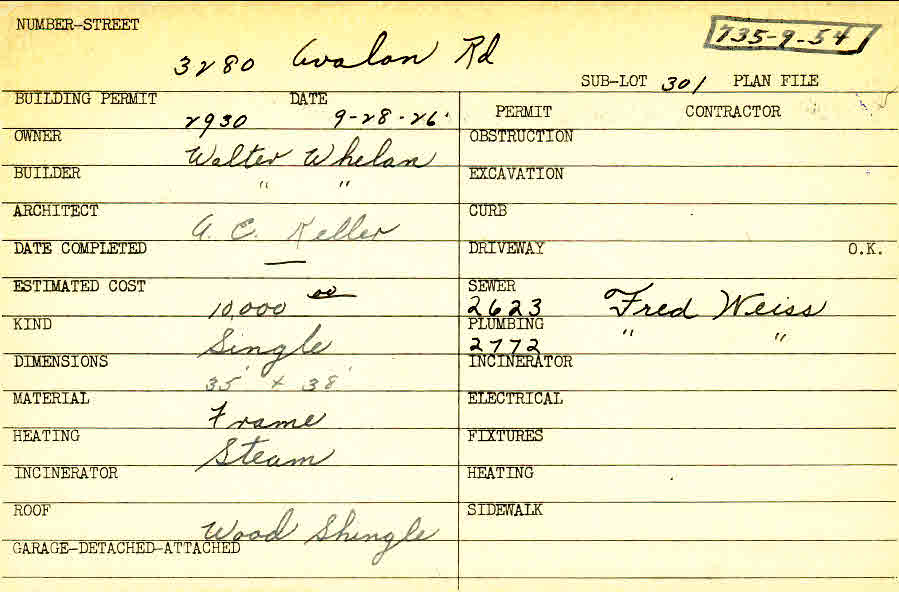 NUMBER-STREET
735-9-54
3280 Avalon Rd
SUB-LOT 301 PLAN FILE
BUILDING PERMIT DATE
2930 9-28-26
PERMIT CONTRACTOR
OWNER
Walter Whelan
BUILDER
" "
ARCHITECT
A. C. Keller
DATE COMPLETED
—
ESTIMATED COST
10,000 00
KIND
Single
DIMENSIONS
35' x 38'
MATERIAL
Frame
HEATING
Steam
INCINERATOR
ROOF
Wood Shingle
GARAGE-DETACHED-ATTACHED
OBSTRUCTION
EXCAVATION
CURB
DRIVEWAY O.K.
SEWER
2623 Fred Weiss
PLUMBING
2772 " "
INCINERATOR
ELECTRICAL
FIXTURES
HEATING
SIDEWALK